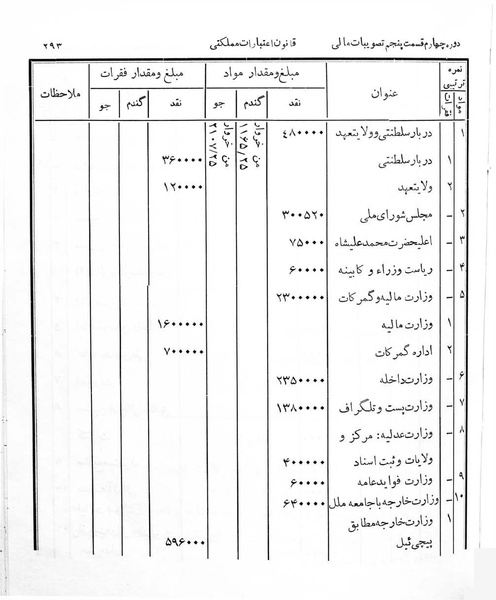 دوره چهارم قسمت پنجم تصویبات مالی قانون اعتبارات مملکتی ۲۹۳
نمره ترتیبی عنوان مبلغ و مقدار مواد مبلغ و مقدار فقرات ملاحظات
مواد فقرات نقد گندم جو نقد گندم جو
۱ دربار سلطنتی و ولایتعهد ۴۸۰۰۰۰ من خروار ۱۱۶۵/۲۵ من خروار ۲۱۰۷/۲۵
۱ دربار سلطنتی ۳۶۰۰۰۰
۲ ولایتعهد ۱۲۰۰۰۰
۲ – مجلس شورای ملی ۳۰۰۵۲۰
۳ – اعلیحضرت محمدعلیشاه ۷۵۰۰۰
۴ – ریاست وزراء و کابینه ۶۰۰۰۰
۵ – وزارت مالیه و گمرکات ۲۳۰۰۰۰۰
۱ وزارت مالیه ۱۶۰۰۰۰۰
۲ اداره گمرکات ۷۰۰۰۰۰
۶ – وزارت داخله ۲۳۵۰۰۰۰
۷ – وزارت پست و تلگراف ۱۳۸۰۰۰۰
۸ – وزارت عدلیه: مرکز و
ولایات و ثبت اسناد ۴۰۰۰۰۰
۹ – وزارت فواید عامه ۶۰۰۰۰
۱۰ – وزارت خارجه با جامعه ملل ۶۴۰۰۰۰
۱ وزارت خارجه مطابق
پیچی ئیل ۵۹۶۰۰۰